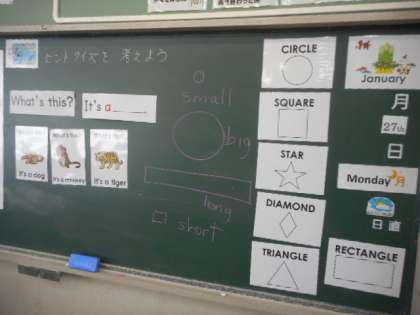 ヒントクイズを 考えよう
What's this?
It's a
What's this?
It's a dog
What's this?
It's a monkey
What's this?
It's a tiger
small
big
long
short
CIRCLE
SQUARE
STAR
DIAMOND
TRIANGLE
RECTANGLE
January
月
27
日
Monday 月
日直